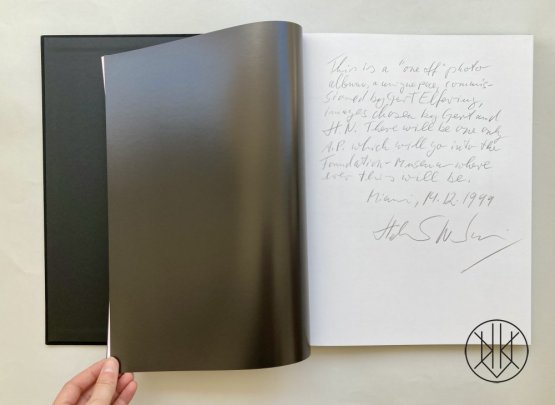 This is a "one off" photo
album, a unique piece, commis-
sioned by Gert Elfering,
images chosen by Gert and
H.N. There will be one only
A.P. which will go into the
Foundation-Museum where
ever this will be.
Miami, 14.12.1999